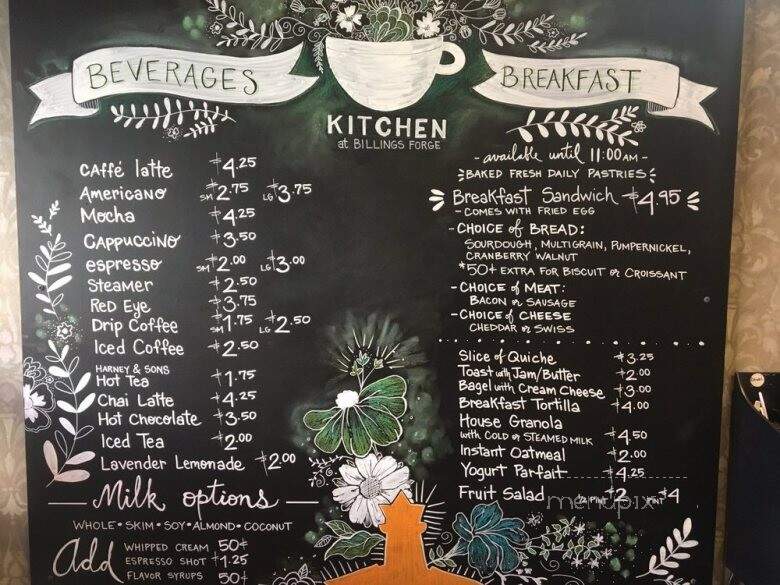 BEVERAGES
BREAKFAST
KITCHEN
at BILLINGS FORGE
Caffé latte $4.25
Americano SM $2.75 LG $3.75
Mocha $4.25
Cappuccino $3.50
espresso SM $2.00 LG $3.00
Steamer $2.50
Red Eye $3.75
Drip Coffee SM $1.75 LG $2.50
Iced Coffee $2.50
HARNEY & SONS
Hot Tea $1.75
Chai Latte $4.25
Hot Chocolate $3.50
Iced Tea $2.00
Lavender Lemonade $2.00
Milk options
WHOLE • SKIM • SOY • ALMOND • COCONUT
Add
WHIPPED CREAM 50¢
ESPRESSO SHOT $1.25
FLAVOR SYRUPS 50¢
- available until 11:00AM -
BAKED FRESH DAILY PASTRIES
Breakfast Sandwich $4.95
- COMES WITH FRIED EGG
- CHOICE of BREAD:
SOURDOUGH, MULTIGRAIN, PUMPERNICKEL,
CRANBERRY WALNUT
*50¢ EXTRA FOR BISCUIT or CROISSANT
- CHOICE of MEAT:
BACON or SAUSAGE
- CHOICE of CHEESE
CHEDDAR or SWISS
Slice of Quiche $3.25
Toast with Jam/Butter $2.00
Bagel with Cream Cheese $3.00
Breakfast Tortilla $4.00
House Granola
with COLD or STEAMED MILK $4.50
Instant Oatmeal $2.00
Yogurt Parfait $4.25
Fruit Salad 1/2 PINT $2 PINT $4
menupix